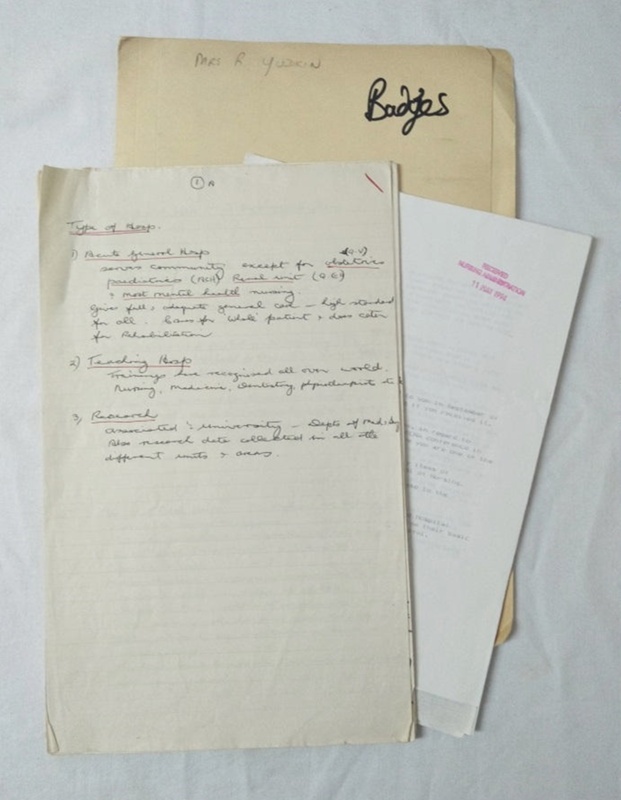 MRS R YUDKIN
Badges
1 A
Type of Hosp.
1) Acute general Hosp
serves community except for obstetrics (Q.V)
paediatrics (MCH) Renal unit (Q E)
& most mental health nursing.
Gives full & adequate general care – high standard
for all. Cares for 'whole' patient & does cater
for Rehabilitation
2) Teaching Hosp
Trainings here recognised all over world.
Nursing, Medicine, Dentistry, physiotherapists
3) Research
associated University – Depts of Med:
Also research data collected in all the
different units & areas.
RECEIVED
NURSING ADMINISTRATION
11 MAY
on September
if you received it.
in regard to
conference in
you are one of the
in Nursing.
in the
Hospital
their